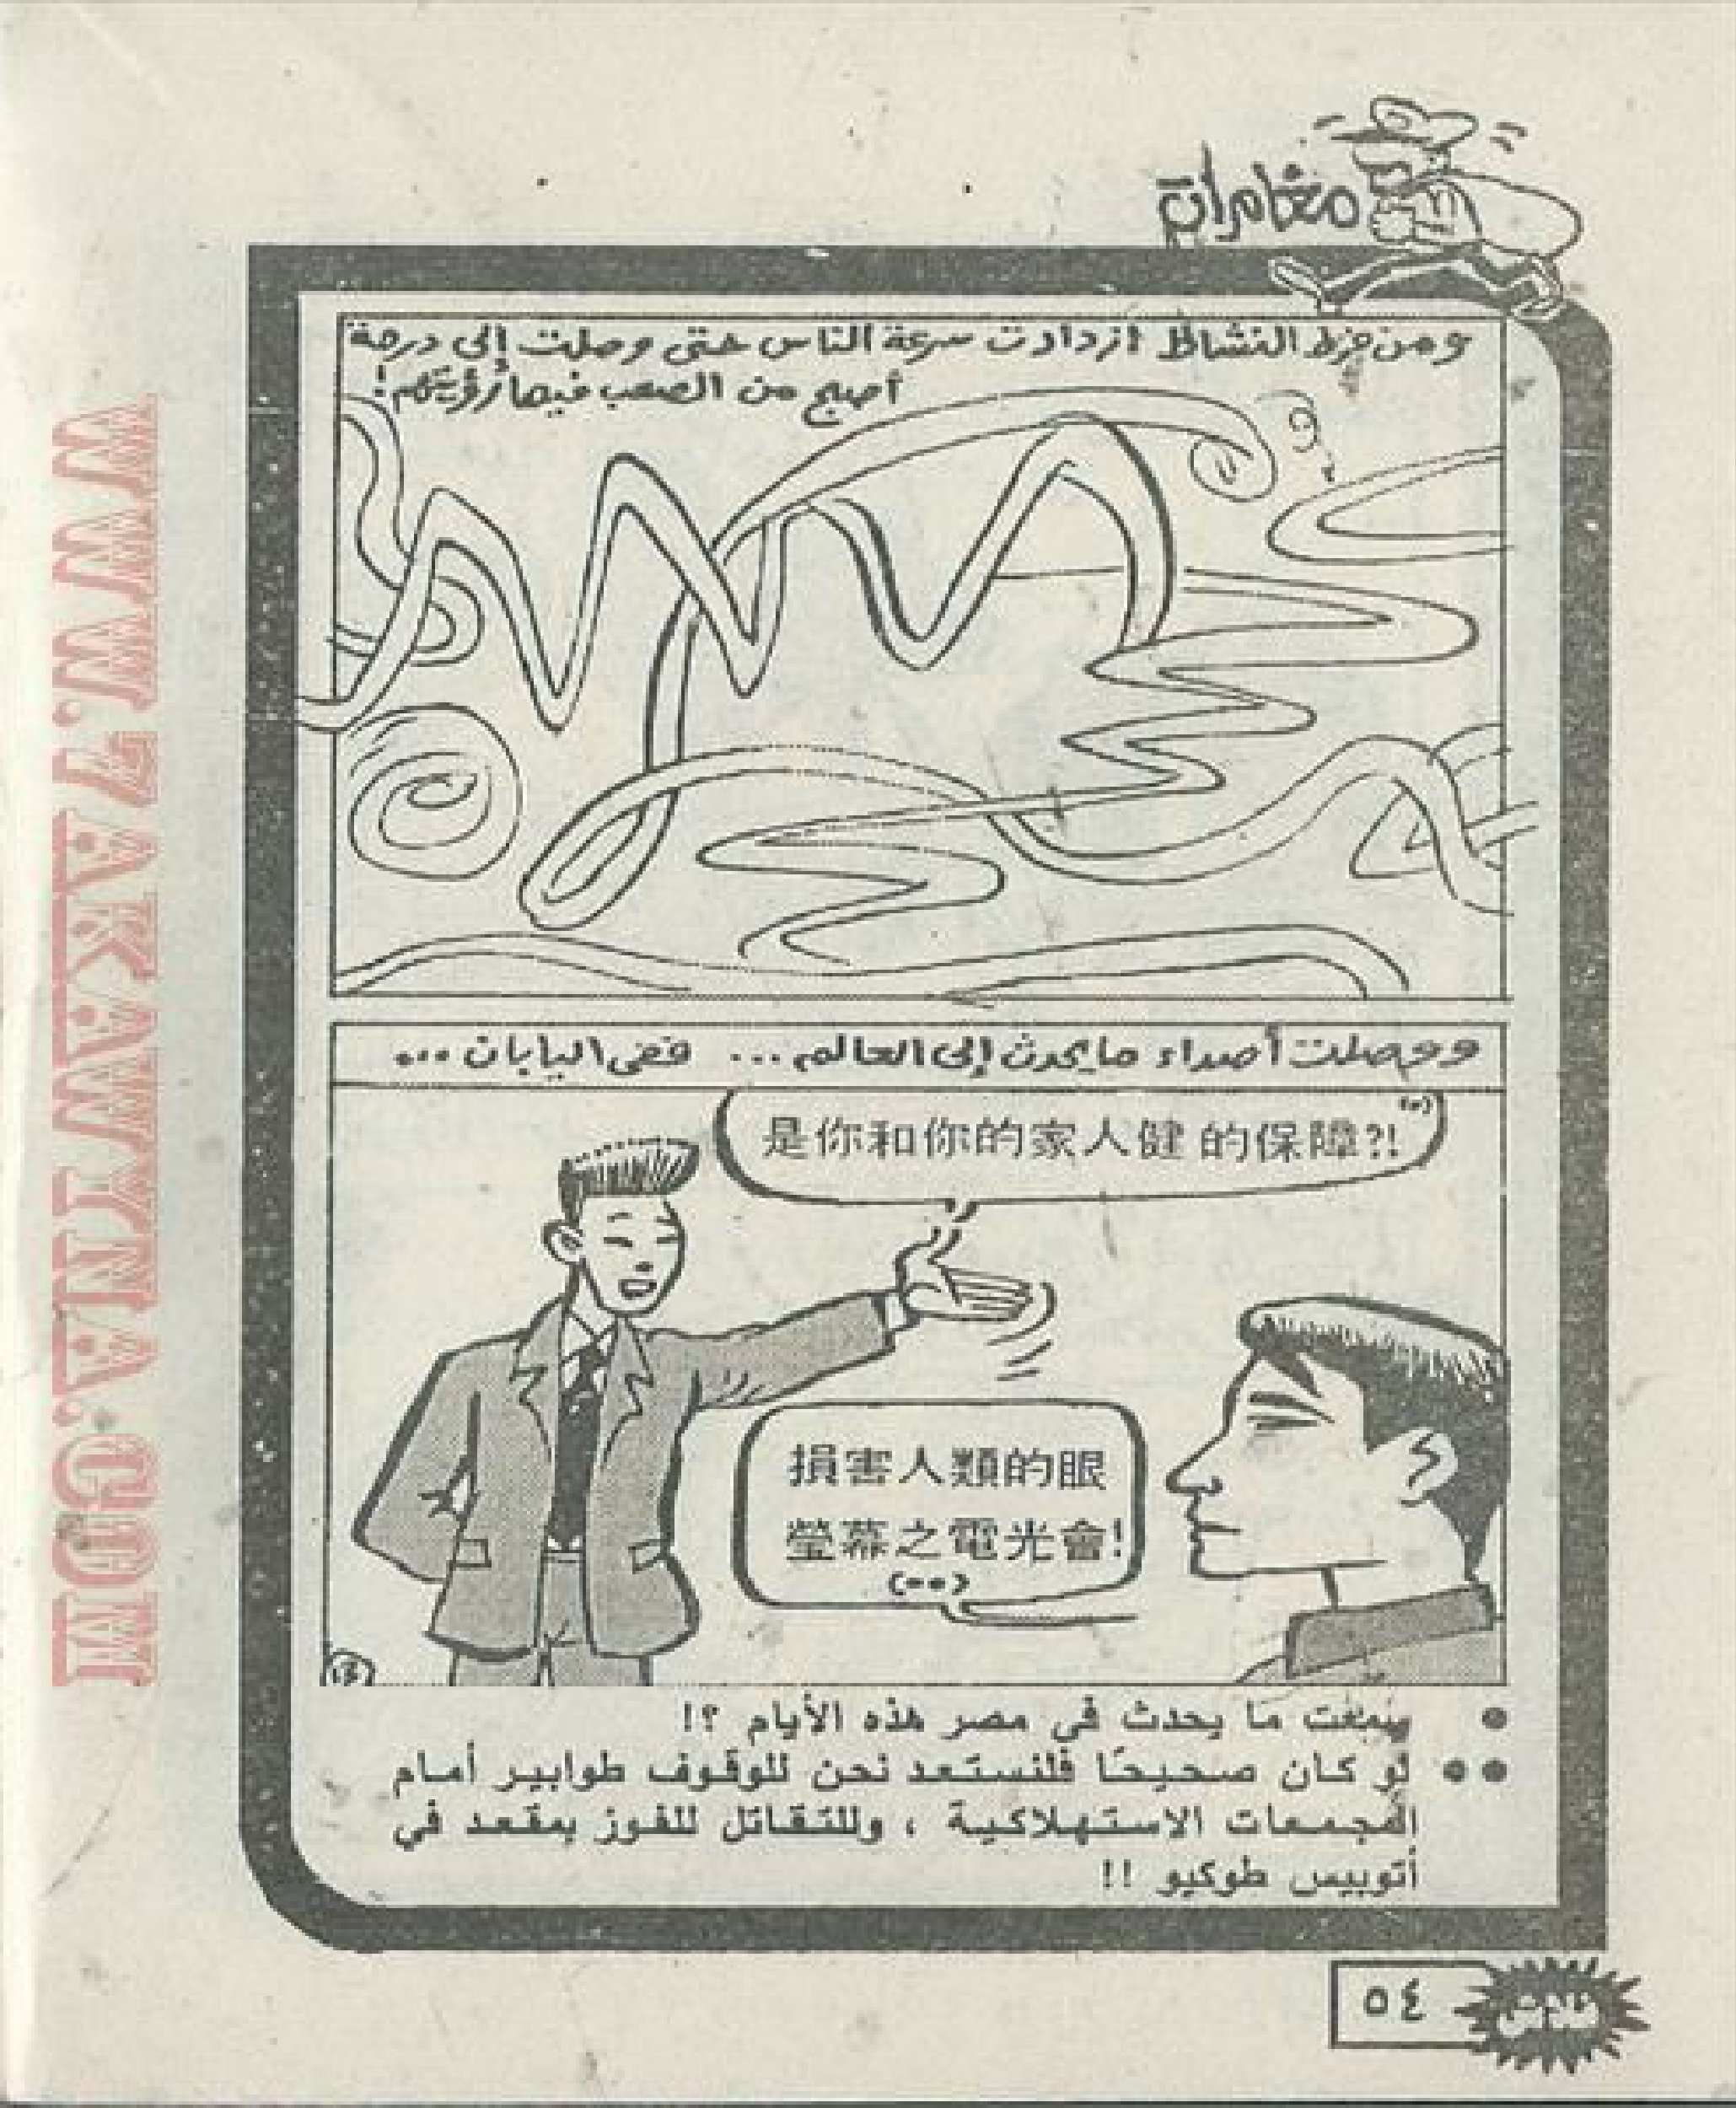 مغامرات
ومن فرط النشاط ازدادت سرعة الناس حتى وصلت إلى درجة
أصبح من الصعب فيها رؤيتهم!
ووصلت أصداء ما يحدث إلى العالم ... ففى اليابان ...
是你和你的家人健 的保障?!
(•)
損害人類的眼
螢幕之電光會!
(••)
• سمعت ما يحدث في مصر هذه الأيام ؟!
•• لو كان صحيحًا فلنستعد نحن للوقوف طوابير أمام
المجمعات الاستهلاكية ، وللتقاتل للفوز بمقعد في
أتوبيس طوكيو !!
٥٤
فلاش
WWW.7AKAWITNA.COM